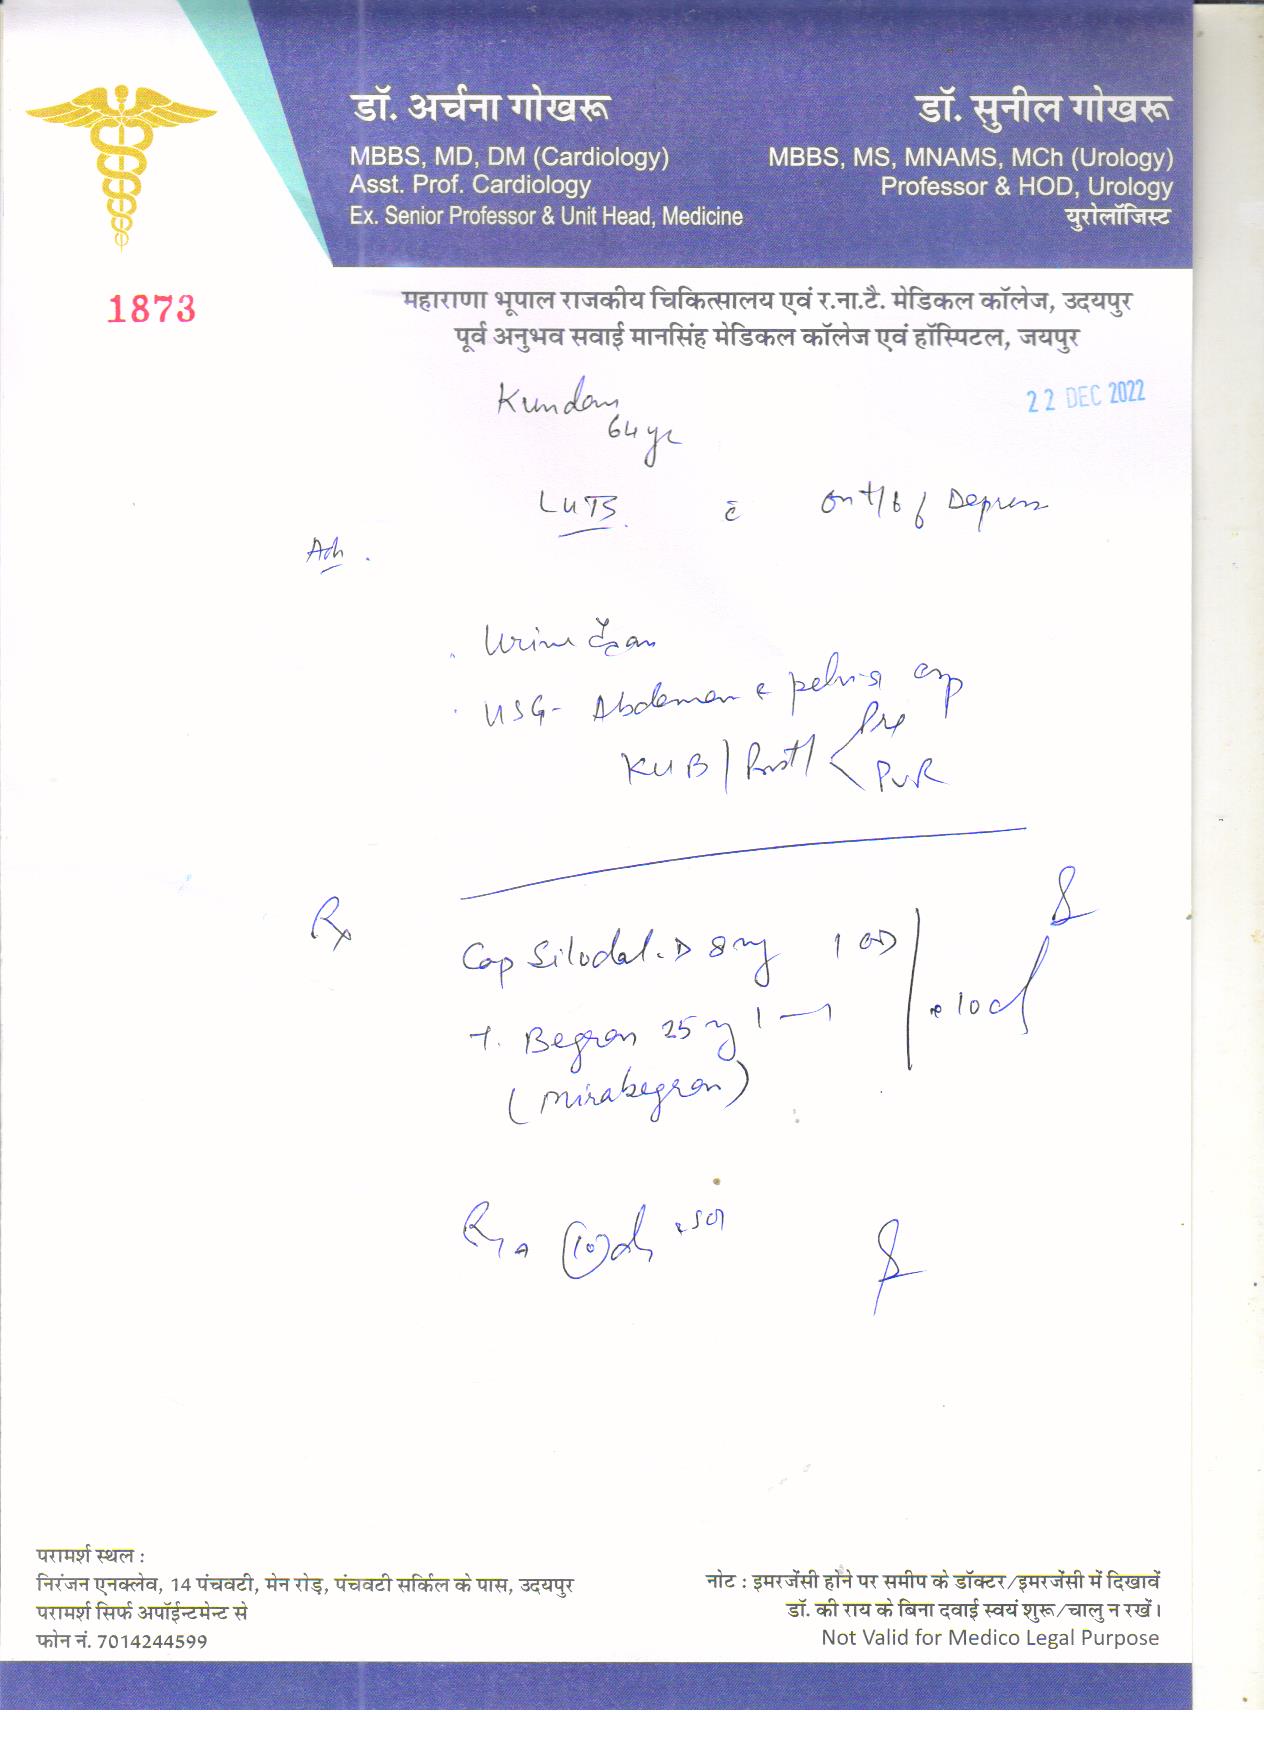 डॉ. अर्चना गोखरू
MBBS, MD, DM (Cardiology)
Asst. Prof. Cardiology
Ex. Senior Professor & Unit Head, Medicine
डॉ. सुनील गोखरू
MBBS, MS, MNAMS, MCh (Urology)
Professor & HOD, Urology
युरोलॉजिस्ट
1873
महाराणा भूपाल राजकीय चिकित्सालय एवं र.ना.टै. मेडिकल कॉलेज, उदयपुर
पूर्व अनुभव सवाई मानसिंह मेडिकल कॉलेज एवं हॉस्पिटल, जयपुर
22 DEC 2022
Kundan
64 yr
LUTS c̄ on t/t of Depress
Adv.
Urine
USG- Abdomen & pelvis
KUB / Prost / Pre
PVR
Rx
Cap Silodal-D 8mg 1 OD
T. Begron 25 mg 1
(Mirabegron)
x 10 d
परामर्श स्थल :
निरंजन एनक्लेव, 14 पंचवटी, मेन रोड़, पंचवटी सर्किल के पास, उदयपुर
परामर्श सिर्फ अपॉईन्टमेन्ट से
फोन नं. 7014244599
नोट : इमरजेंसी होने पर समीप के डॉक्टर/इमरजेंसी में दिखावें
डॉ. की राय के बिना दवाई स्वयं शुरू/चालु न रखें।
Not Valid for Medico Legal Purpose